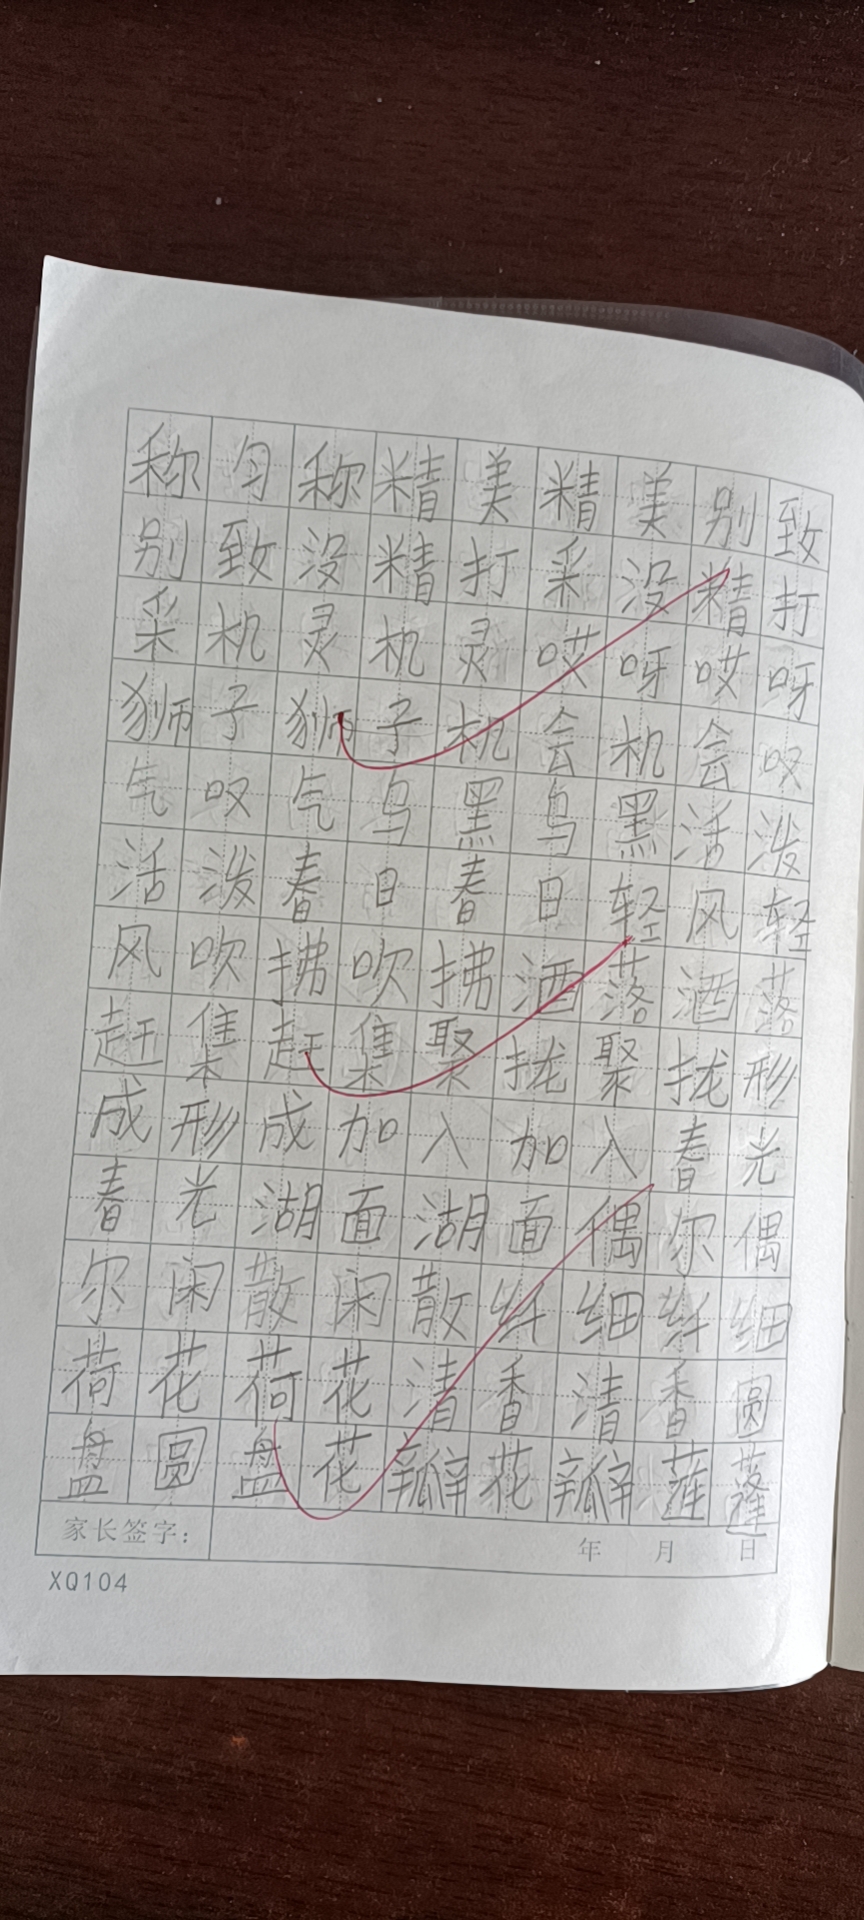 称匀称精美精美别致
别致没精打采没精打
采机灵机灵哎呀哎呀
狮子狮子机会机会叹
气叹气乌黑乌黑活泼
活泼春日春日轻风轻
风吹拂吹拂洒落洒落
赶集赶集聚拢聚拢形
成形成加入加入春光
春光湖面湖面偶尔偶
尔闲散闲散纤细纤细
荷花荷花清香清香圆
盘圆盘花瓣花瓣莲蓬
家长签字： 年 月 日
XQ104